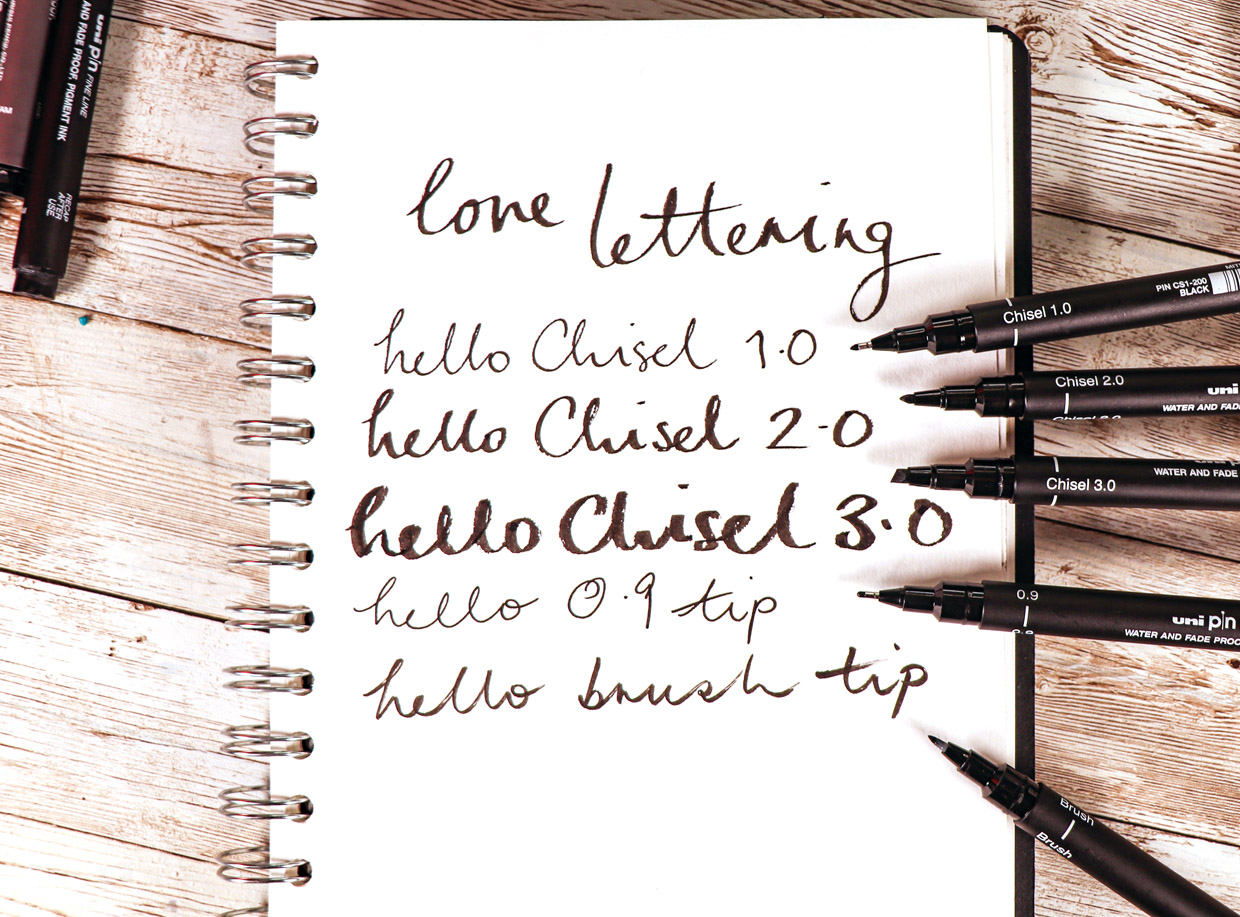 love lettering
hello Chisel 1.0
hello Chisel 2.0
hello Chisel 3.0
hello 0.9 tip
hello brush tip
uni pin FINE LINE
AND FADE PROOF, PIGMENT INK
RECAP AFTER USE
PIN CS1-200
BLACK
Chisel 1.0
Chisel 2.0
uni
WATER AND FADE
Chisel 3.0
WATER AND FADE
0.9
uni pin
WATER AND FADE PROOF
Brush
Brush